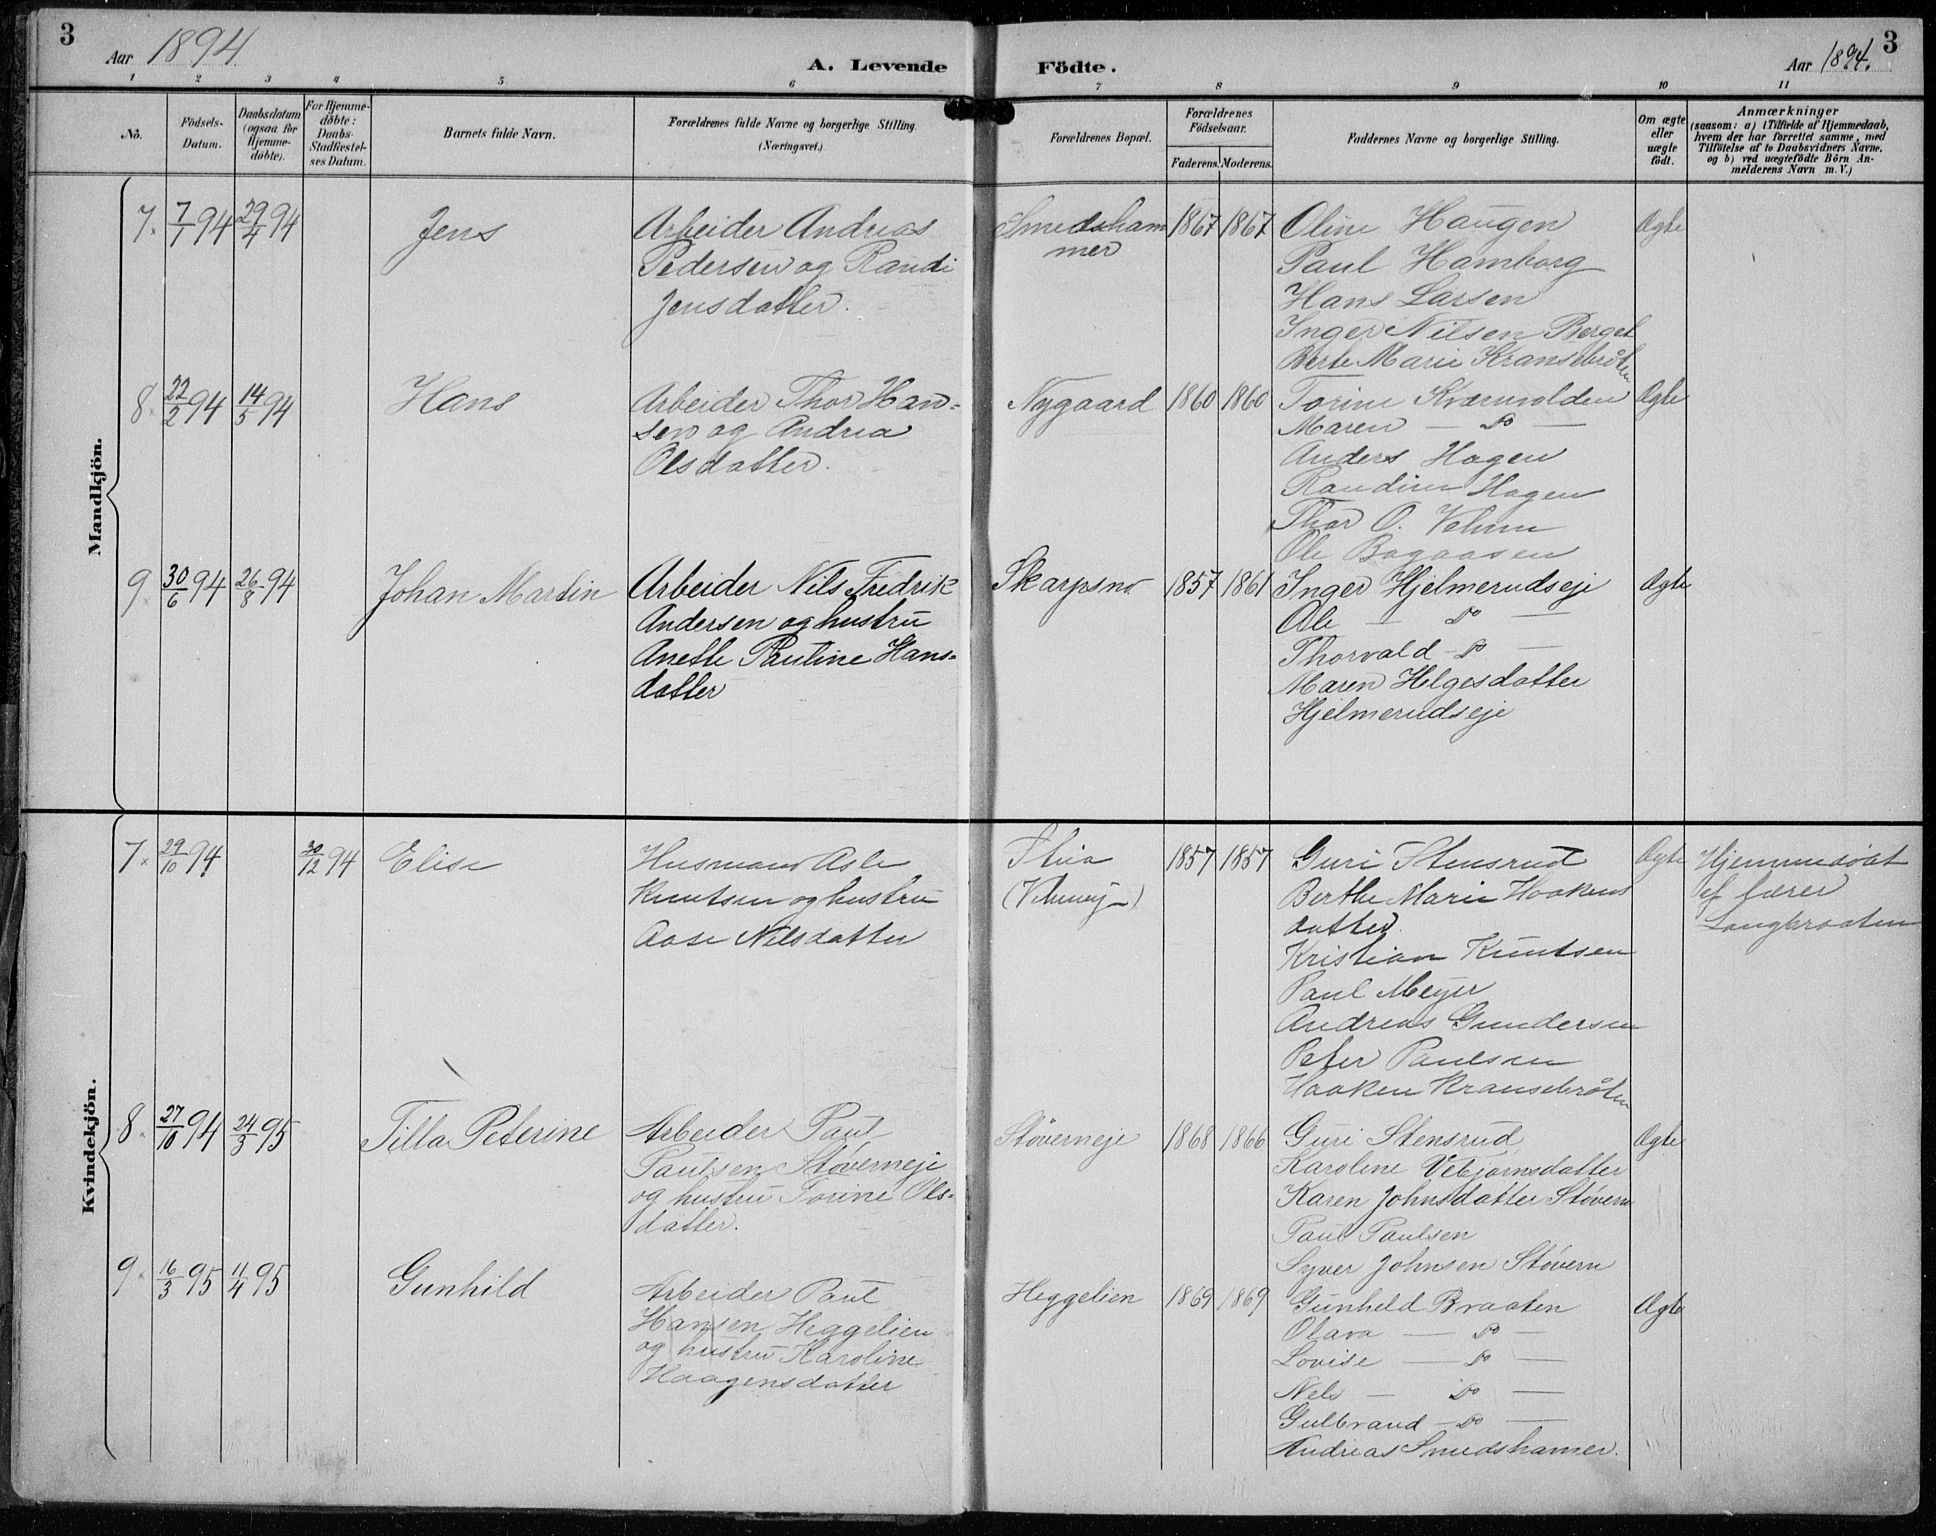 3
Aar 1894
A. Levende
Födte.
Aar 1894.
3
1 2 3 4 5 6 7 8 9 10 11
No.
Födsels-
Datum.
Daabsdatum
(ogsaa for
Hjemme-
døbte).
For Hjemme-
døbte:
Daabs-
Stadfæstel-
ses Datum.
Barnets fulde Navn.
Forældrenes fulde Navne og borgerlige Stilling.
(Næringsvei.)
Forældrenes Bopæl.
Forældrenes
Födselsaar.
Faderens. Moderens.
Faddernes Navne og borgerlige Stilling.
Om ægte
eller
uægte
födt.
Anmærkninger
(saasom: a) i Tilfælde af Hjemmedaab,
hvem der har forrettet samme, med
Tilföielse af to Daabsvidners Navne,
og b) ved uægtefödte Börn An-
melderens Navn m. V.)
Mandkjön.
7. 7/1 94 29/4 94
Jens
Arbeider Andreas
Pedersen og Randi
Jensdatter.
Smedsham
mer
1867 1867
Oline Haugen
Paul Hamborg
Hans Larsen
Inger Nilsen Berget
Berte Marie Kransebråten
Ægte
8. 22/2 94 14/5 94
Hans
Arbeider Thor Han-
sen og Andrea
Olsdatter.
Nygaard
1860 1860
Torine Kværnvolden
Maren — Do —
Anders Hagen
Randine Hagen
Thor O. Velum
Ole Bagaasen
Ægte
9. 30/6 94 26/8 94
Johan Martin
Arbeider Nils Fredrik
Andersen og hustru
Anette Pauline Hans-
datter
Skarpsno
1857 1861
Inger Hjelmerudseje
Ole — Do —
Thorvald - Do —
Maren Helgesdatter
Hjelmerudseje
Ægte
Kvindekjön.
7. 29/10 94 30/12 94
Elise
Husmand Asle
Knutsen og hustru
Aase Nilsdatter
1857 1857
Guri Stensrud
Berthe Marie Haakens
datter.
Kristian Knutsen
Paul Meyer
Andreas Gundersen
Peter Paulsen
Haaken Kransebråten
Ægte
Hjemmedøbt
af lærer
Langbraaten
8. 27/10 94 24/3 95
Tilla Peterine
Arbeider Paul
Paulsen Støverneje
og hustru Torine Ols-
datter.
Støverneje
1868 1866
Guri Stensrud
Karoline Vebjørnsdatter
Karen Johnsdatter Støvern
Paul Paulsen
Syver Johnsen Støvern
Ægte
9. 16/3 95 11/4 95
Gunhild
Arbeider Paul
Hansen Heggelien
og hustru Karoline
Haagensdatter
Heggelien
1869 1869
Gunhild Braaten
Olava — Do —
Lovise — Do —
Nils — Do —
Gulbrand - Do —
Andreas Smedshamer.
Ægte